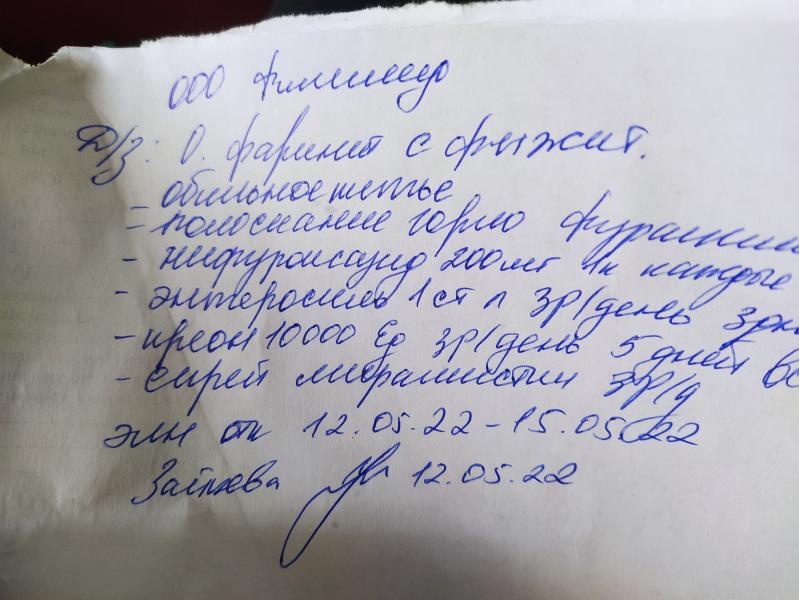 ООО
Д/з: О. фарингит с
- обильное питье
- полоскание горло
- нифуроксазид 200 мг 1к каждые
- энтеросгель 1 ст л 3р/день
- креон 10000 Ед 3р/день 5 дней
- спрей мирамистин 3р/д
элн 12.05.22-15.05.22
12.05.22